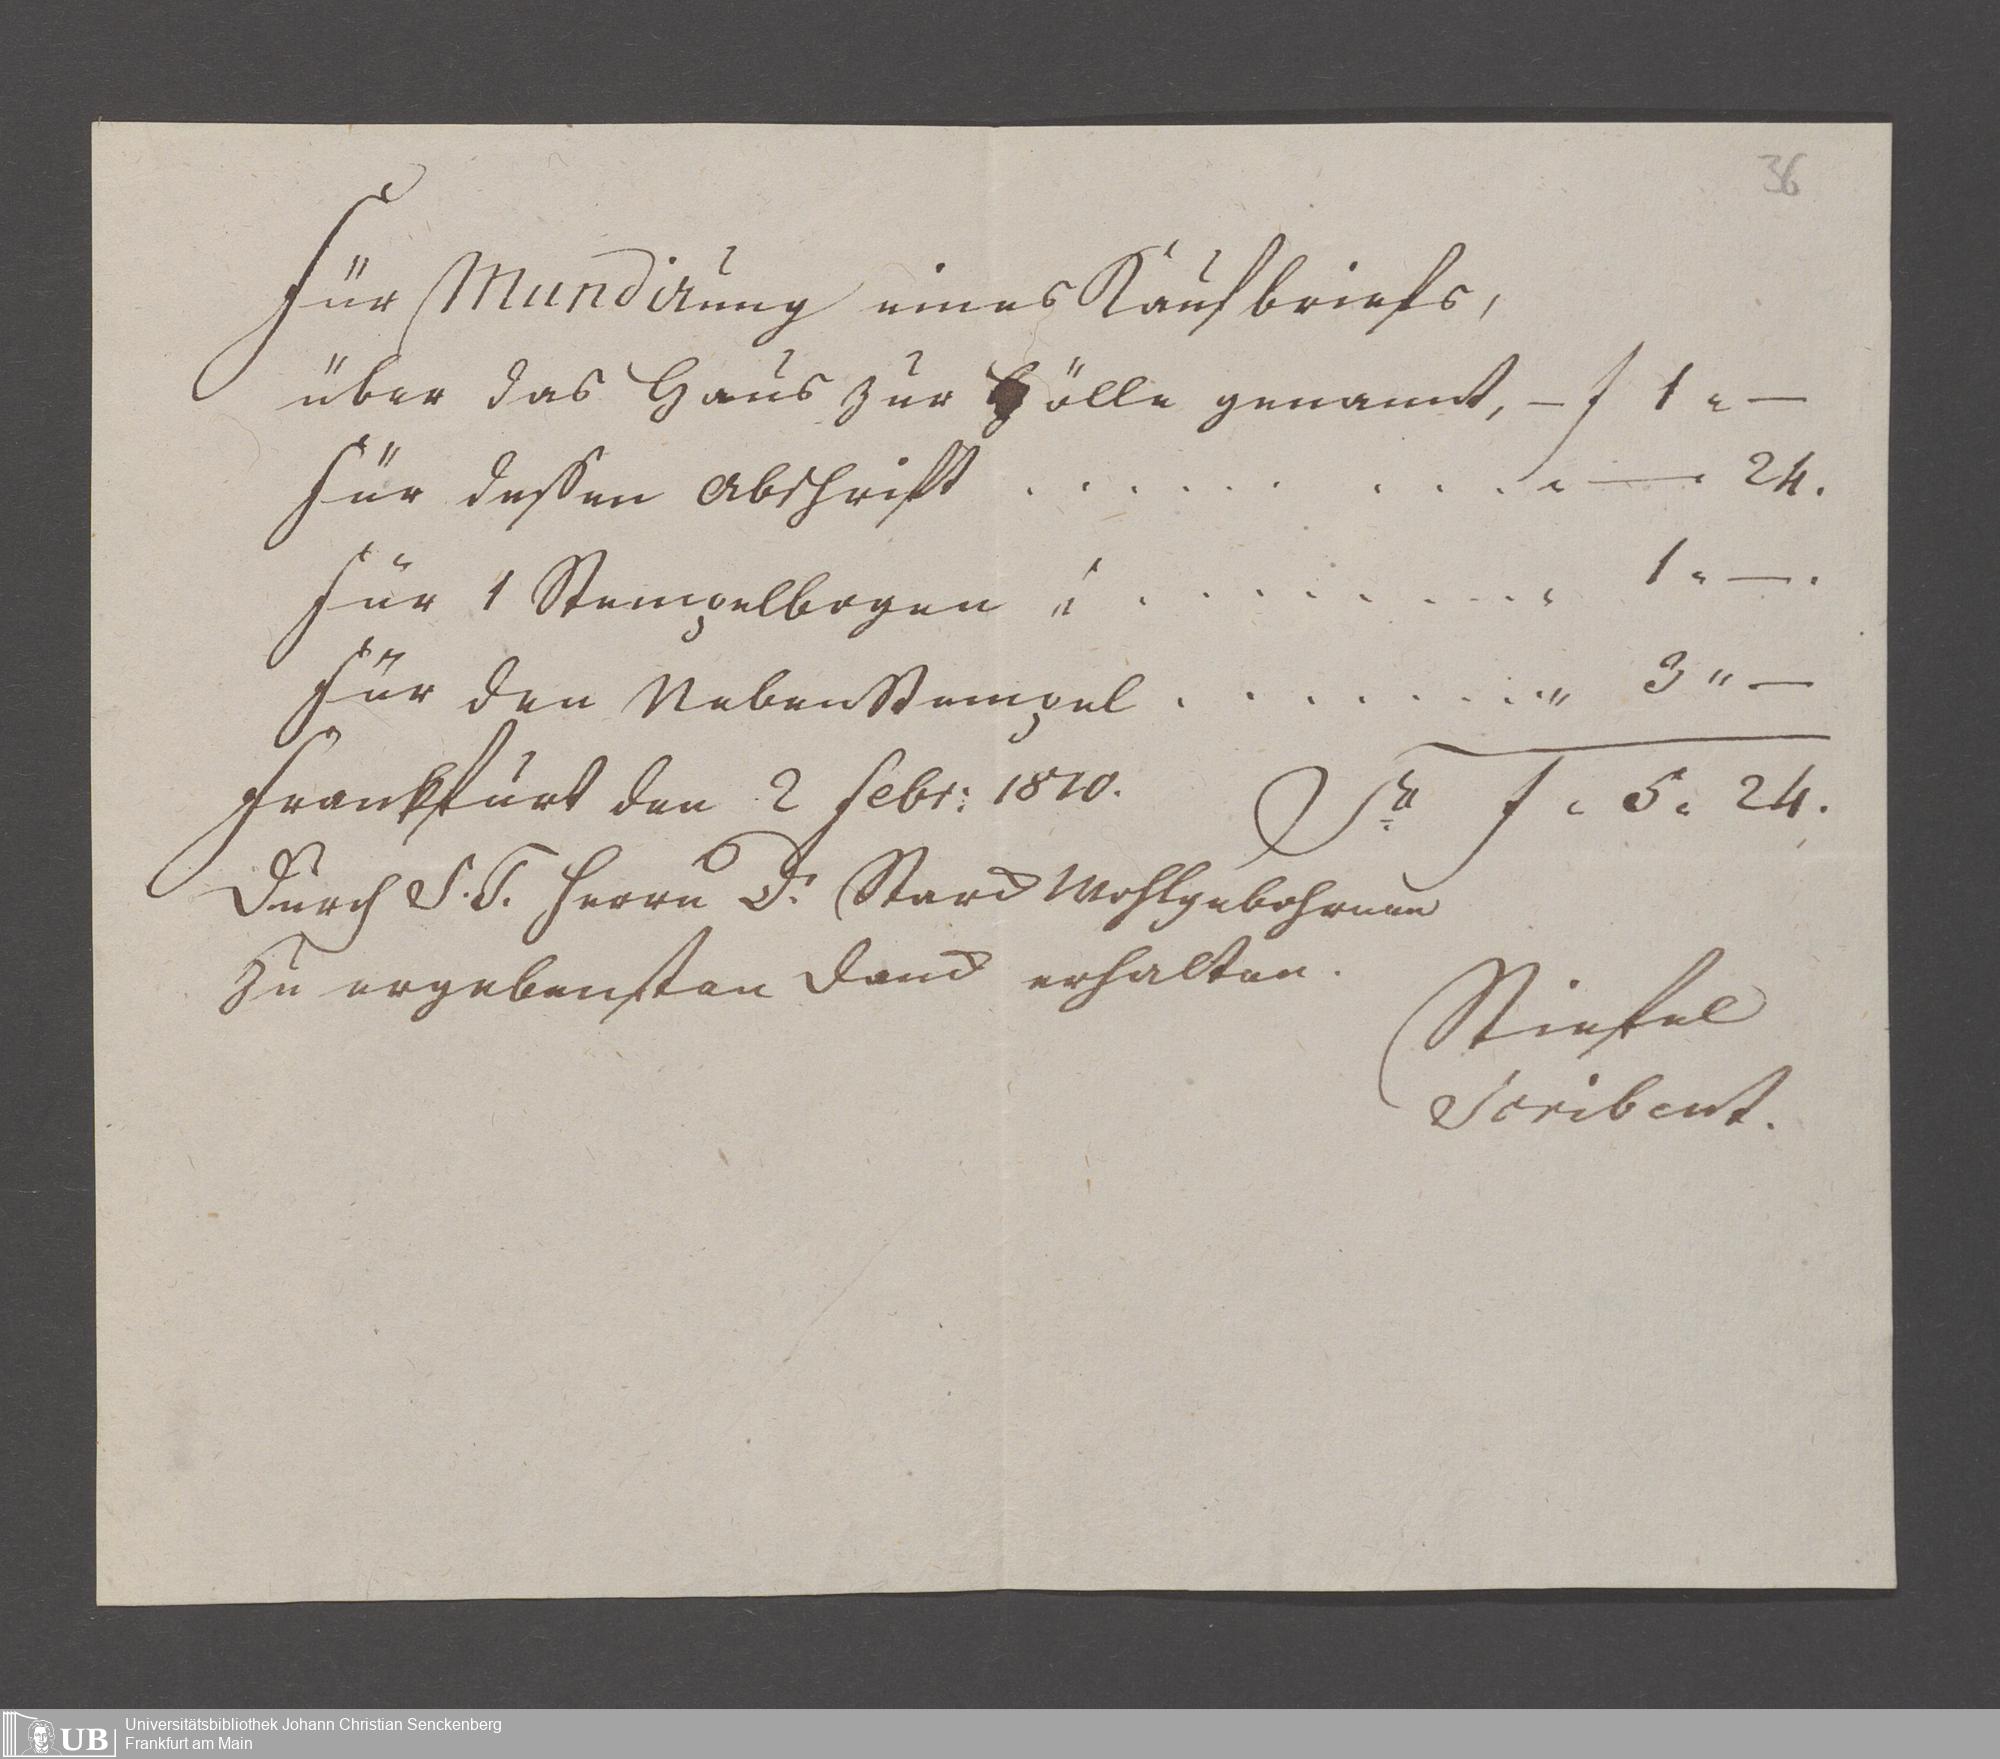 36
Für Mundirung eines Kaufbriefs,
über das Haus zur Hölle genannt, – f 1 " —
Für dessen Abschrift . . . . . . . . . . " — . 24.
Für 1 Stempelbogen . . . . . . . . . . " 1 " — .
Für den Nebenstempel . . . . . . . . " 3 " —
Frankfurt den 2 Febr: 1810. Sa f " 5 " 24.
Durch S. T. Herrn Dr Starck Wohlgebohrnen
zu ergebensten Danck erhalten.
Stiefel
Scribent.
UB Universitätsbibliothek Johann Christian Senckenberg
Frankfurt am Main